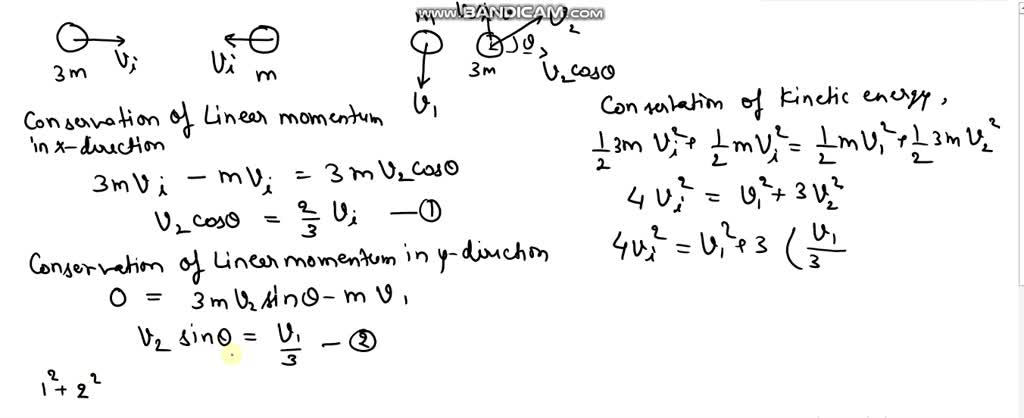 www.BANDICAM.com
3m vi vi m
m
v1
3m
v2
θ
v2 cosθ
Conservation of Linear momentum
in x-direction
3mvi - mvi = 3mv2cosθ
v2cosθ = 2/3 vi — ①
Conservation of Linear momentum in y-diruction
0 = 3mv2sinθ - mv1
v2 sinθ = v1/3 — ②
1² + 2²
Consertation of kinetic energy,
1/2 3m vi² + 1/2 mvi² = 1/2 mv1² + 1/2 3mv2²
4vi² = v1² + 3v2²
4vi² = v1² + 3 (v1/3